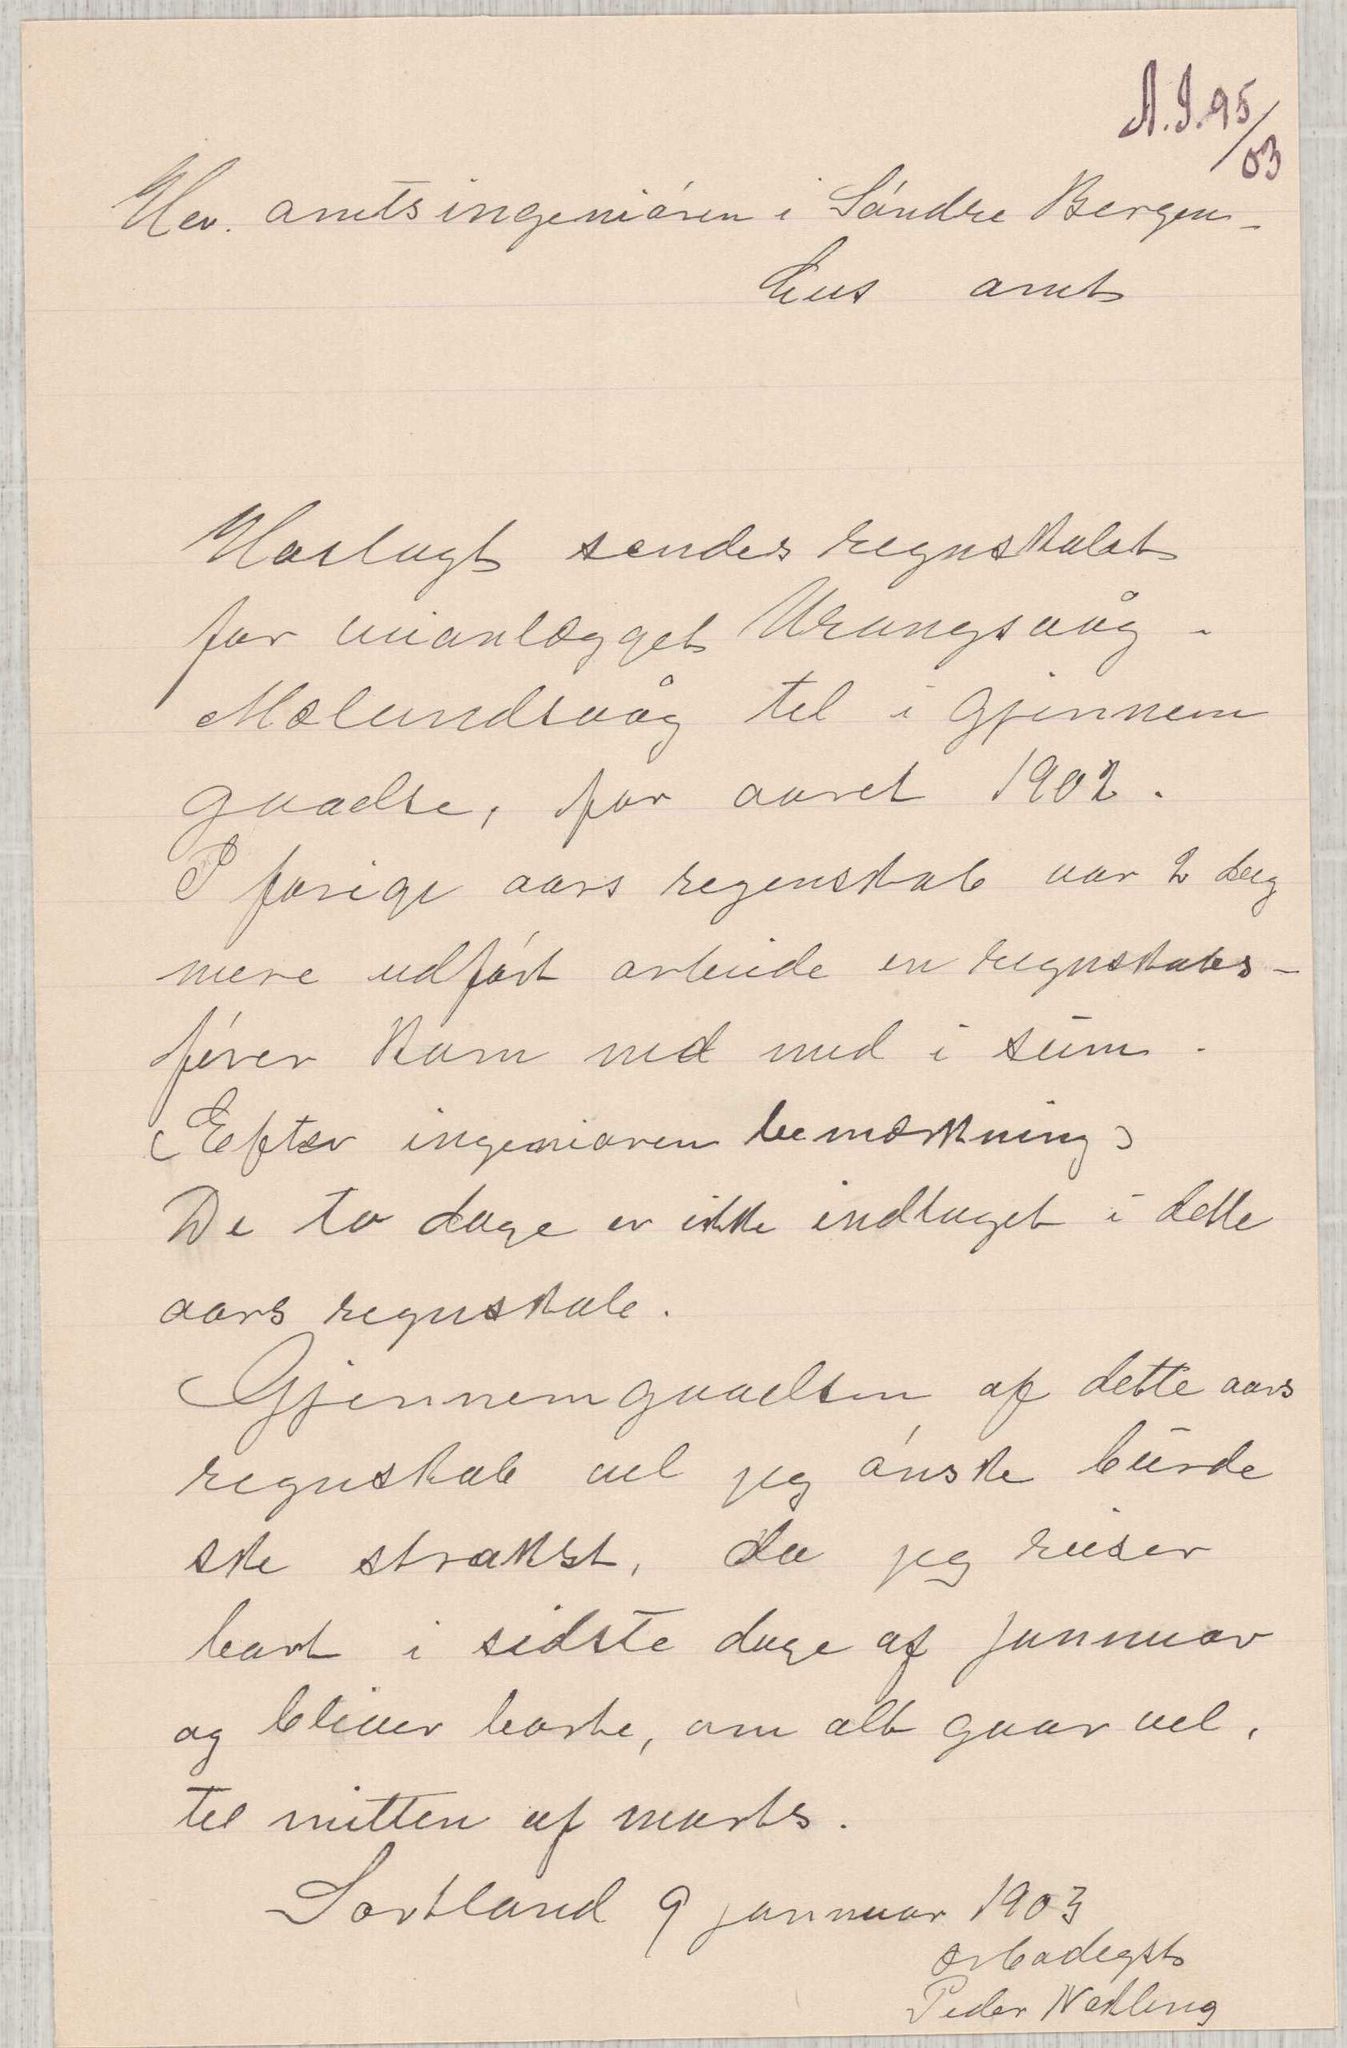 A.I. 95/03
Her. amtsingeniören i Söndre Bergen-
hus amt
Vedlagt sendes regnskabet
for veianlægget Vrangsvåg -
Mælandsvåg til i gjennem
gaaelse, for aaret 1902.
I forige aars regenskab var 2 dag
mere udfört arbeide en regnskabs-
förer kom ned med i sum.
(Eefter ingeniøren bemærkning)
De to dage er ikke indtaget i dette
aars regnskab.
Gjennemgaaelsen af dette aars
regnskab vil jeg önske burde
ske strakst, da jeg reiser
bort i sidste dage af jannuar
og bliver borte, om alt gaar vel,
til mitten af marts.
Sortland 9 jannuar 1903
Peder